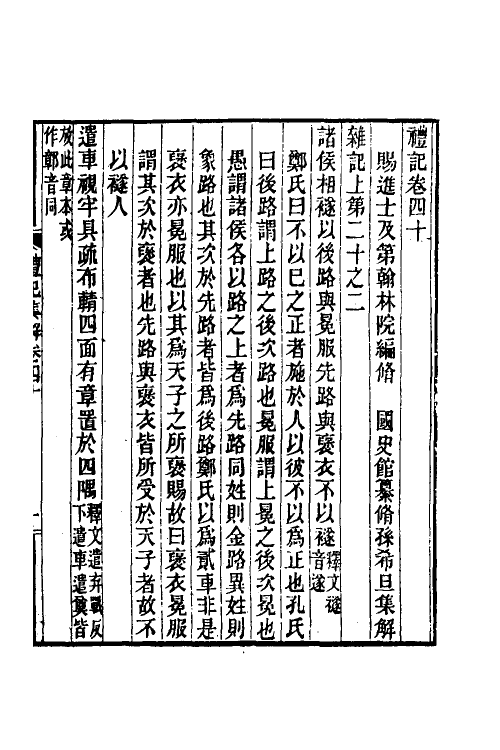 禮記卷四十
賜進士及第翰林院編脩　國史館纂脩孫希旦集解
雜記上第二十之二
諸侯相襚以後路與冕服先路與褒衣不以襚釋文襚音遂
鄭氏曰不以己之正者施於人以彼不以為正也孔氏
曰後路謂上路之後次路也冕服謂上冕之後次冕也
愚謂諸侯各以路之上者為先路同姓則金路異姓則
象路也其次於先路者皆為後路鄭氏以為貳車非是
褒衣亦冕服也以其為天子之所褒賜故曰褒衣冕服
謂其次於褒者也先路與褒衣皆所受於天子者故不
以襚人
遣車視牢具疏布輤四面有章置於四隅釋文遣弃戰反下遣車遣奠皆
放此章本或作鄣音同
禮記集解卷四十　一